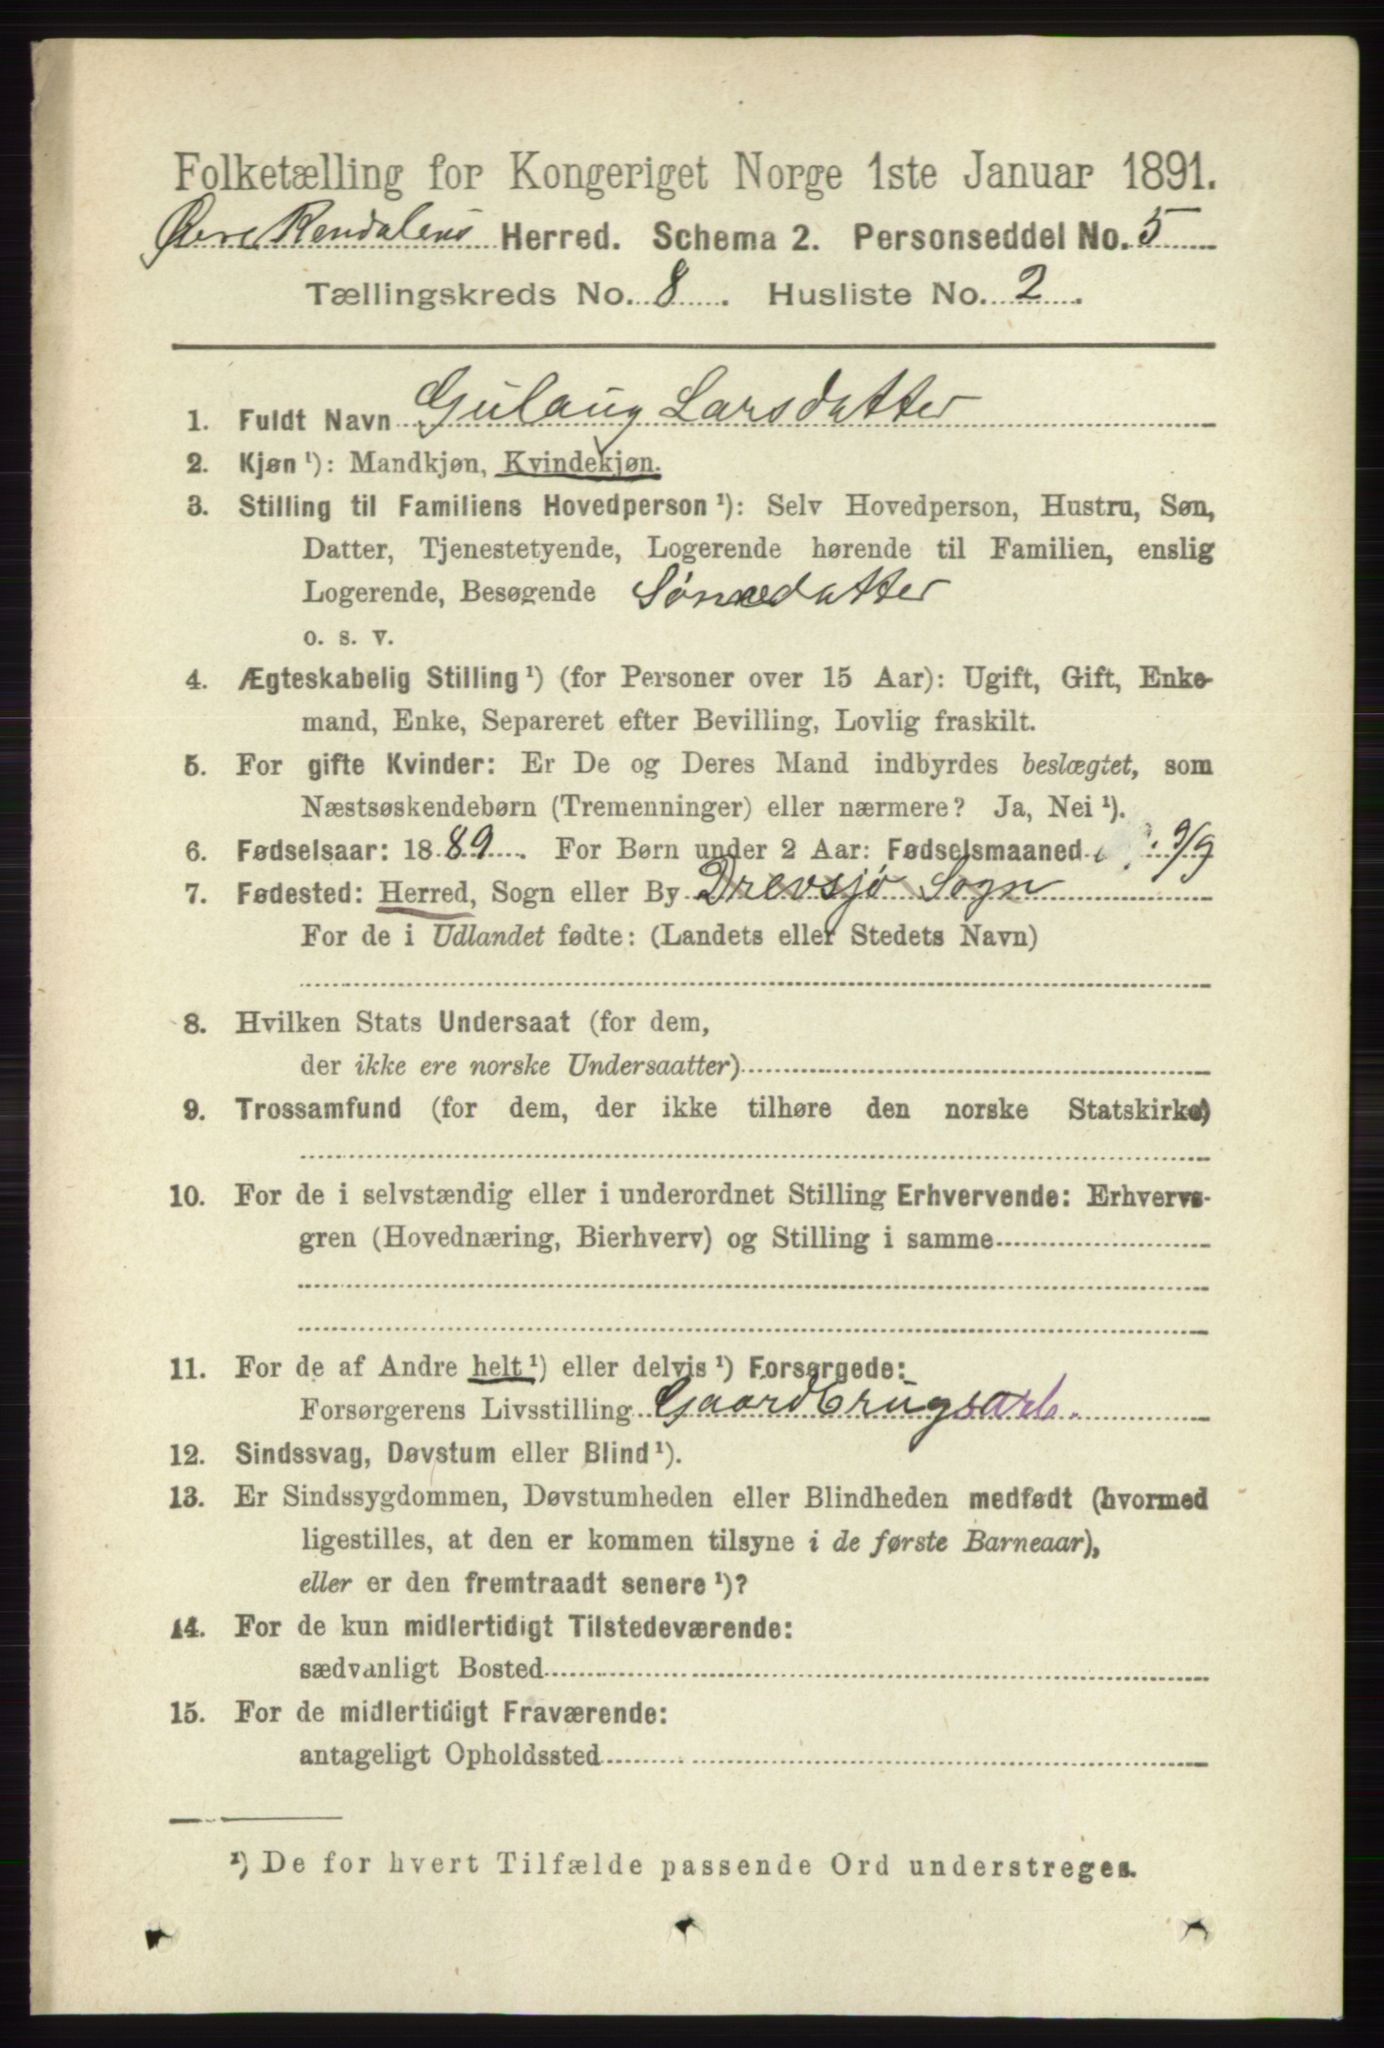 Folketælling for Kongeriget Norge 1ste Januar 1891.
Øvre Rendalens Herred. Schema 2. Personseddel No. 5
Tællingskreds No. 8. Husliste No. 2.
1. Fuldt Navn Gulaug Larsdatter
2. Kjøn ¹): Mandkjøn, Kvindekjøn.
3. Stilling til Familiens Hovedperson ¹): Selv Hovedperson, Hustru, Søn,
Datter, Tjenestetyende, Logerende hørende til Familien, enslig
Logerende, Besøgende Sønnedatter
o. s. v.
4. Ægteskabelig Stilling ¹) (for Personer over 15 Aar): Ugift, Gift, Enke-
mand, Enke, Separeret efter Bevilling, Lovlig fraskilt.
5. For gifte Kvinder: Er De og Deres Mand indbyrdes beslægtet, som
Næstsøskendebørn (Tremenninger) eller nærmere? Ja, Nei ¹).
6. Fødselsaar: 1889. For Børn under 2 Aar: Fødselsmaaned 9/9
7. Fødested: Herred, Sogn eller By Drevsjø Sogn
For de i Udlandet fødte: (Landets eller Stedets Navn)
8. Hvilken Stats Undersaat (for dem,
der ikke ere norske Undersaatter)
9. Trossamfund (for dem, der ikke tilhøre den norske Statskirke)
10. For de i selvstændig eller i underordnet Stilling Erhvervende: Erhvervs-
gren (Hovednæring, Bierhverv) og Stilling i samme
11. For de af Andre helt ¹) eller delvis ¹) Forsørgede:
Forsørgerens Livsstilling Gaardbrugsarb.
12. Sindssvag, Døvstum eller Blind ¹).
13. Er Sindssygdommen, Døvstumheden eller Blindheden medfødt (hvormed
ligestilles, at den er kommen tilsyne i de første Barneaar),
eller er den fremtraadt senere ¹)?
14. For de kun midlertidigt Tilstedeværende:
sædvanligt Bosted
15. For de midlertidigt Fraværende:
antageligt Opholdssted
¹) De for hvert Tilfælde passende Ord understreges.